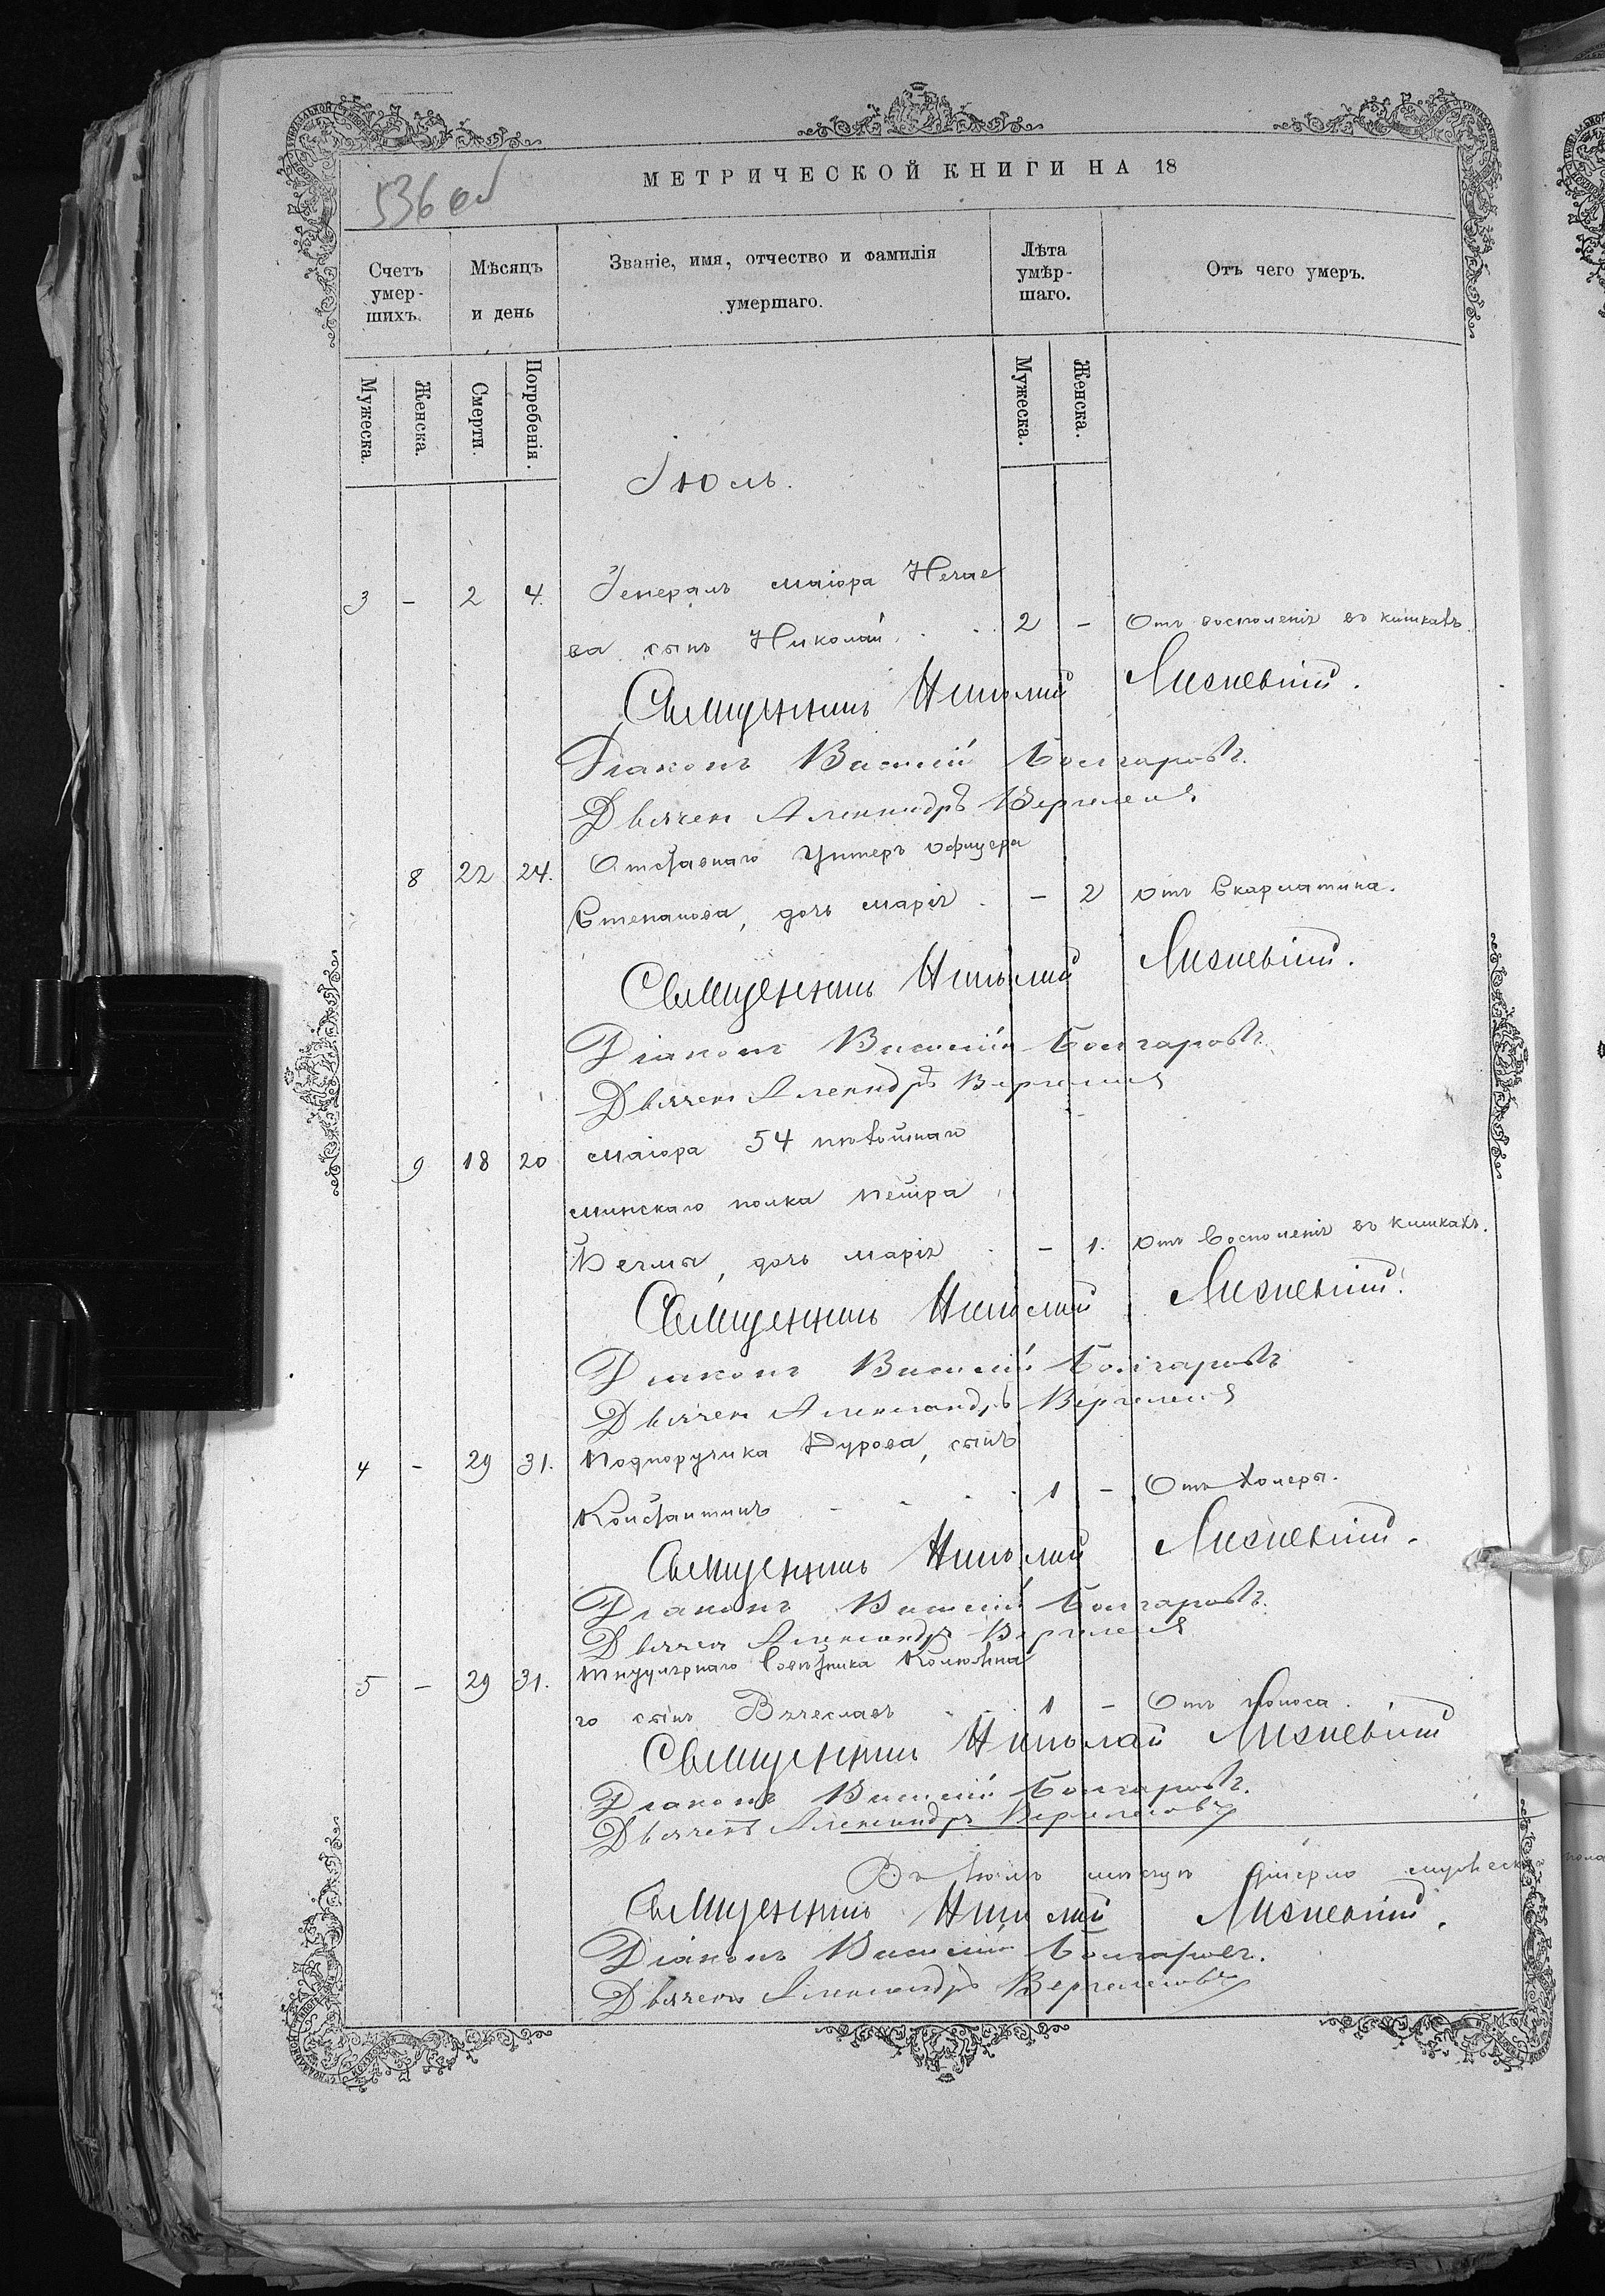 536 об
МЕТРИЧЕСКОЙ КНИГИ НА 18
Счетъ умер-шихъ.
Мѣсяцъ и день
Званіе, имя, отчество и фамилія умершаго.
Лѣта умѣр-шаго.
Отъ чего умеръ.
Мужеска.
Женска.
Смерти.
Погребенія.
Мужеска.
Женска.
Іюль.
3 – 2 4. Генералъ маіора Нечае
ва сынъ Николай. 2 – Отъ восполенія въ кишкахъ.
Священникъ Николай Лизневичъ.
Діаконъ Василій Болгаровъ.
Дьячекъ Александръ
8 22 24. Отставнаго Унтеръ офицера
Степанова, дочь Марія – 2 Отъ Скарлатина.
Священникъ Николай Лизневичъ.
Діаконъ Василій Болгаровъ.
Дьячекъ Александръ
9 18 20 Маіора 54 пѣхотнаго
минскаго полка Петра
дочь Марія – 1. Отъ Восполенія въ кишкахъ.
Священникъ Николай Лизневичъ.
Діаконъ Василій Болгаровъ
Дьячекъ Александръ
4 – 29 31. Подпоручика Дурова, сынъ
Константинъ 1 – Отъ холеры.
Священникъ Николай Лизневичъ.
Діаконъ Василій Болгаровъ.
Дьячекъ Александръ
5 – 29 31. Титулярнаго Совѣтника
го сынъ Вячеславъ 1 – Отъ поноса.
Священникъ Николай Лизневичъ
Діаконъ Василій Болгаровъ.
Дьячекъ Александръ
Въ Іюлѣ мѣсяцѣ умерло мужеска пола
Священникъ Николай Лизневичъ.
Діаконъ Василій Болгаровъ.
Дьячекъ Александръ